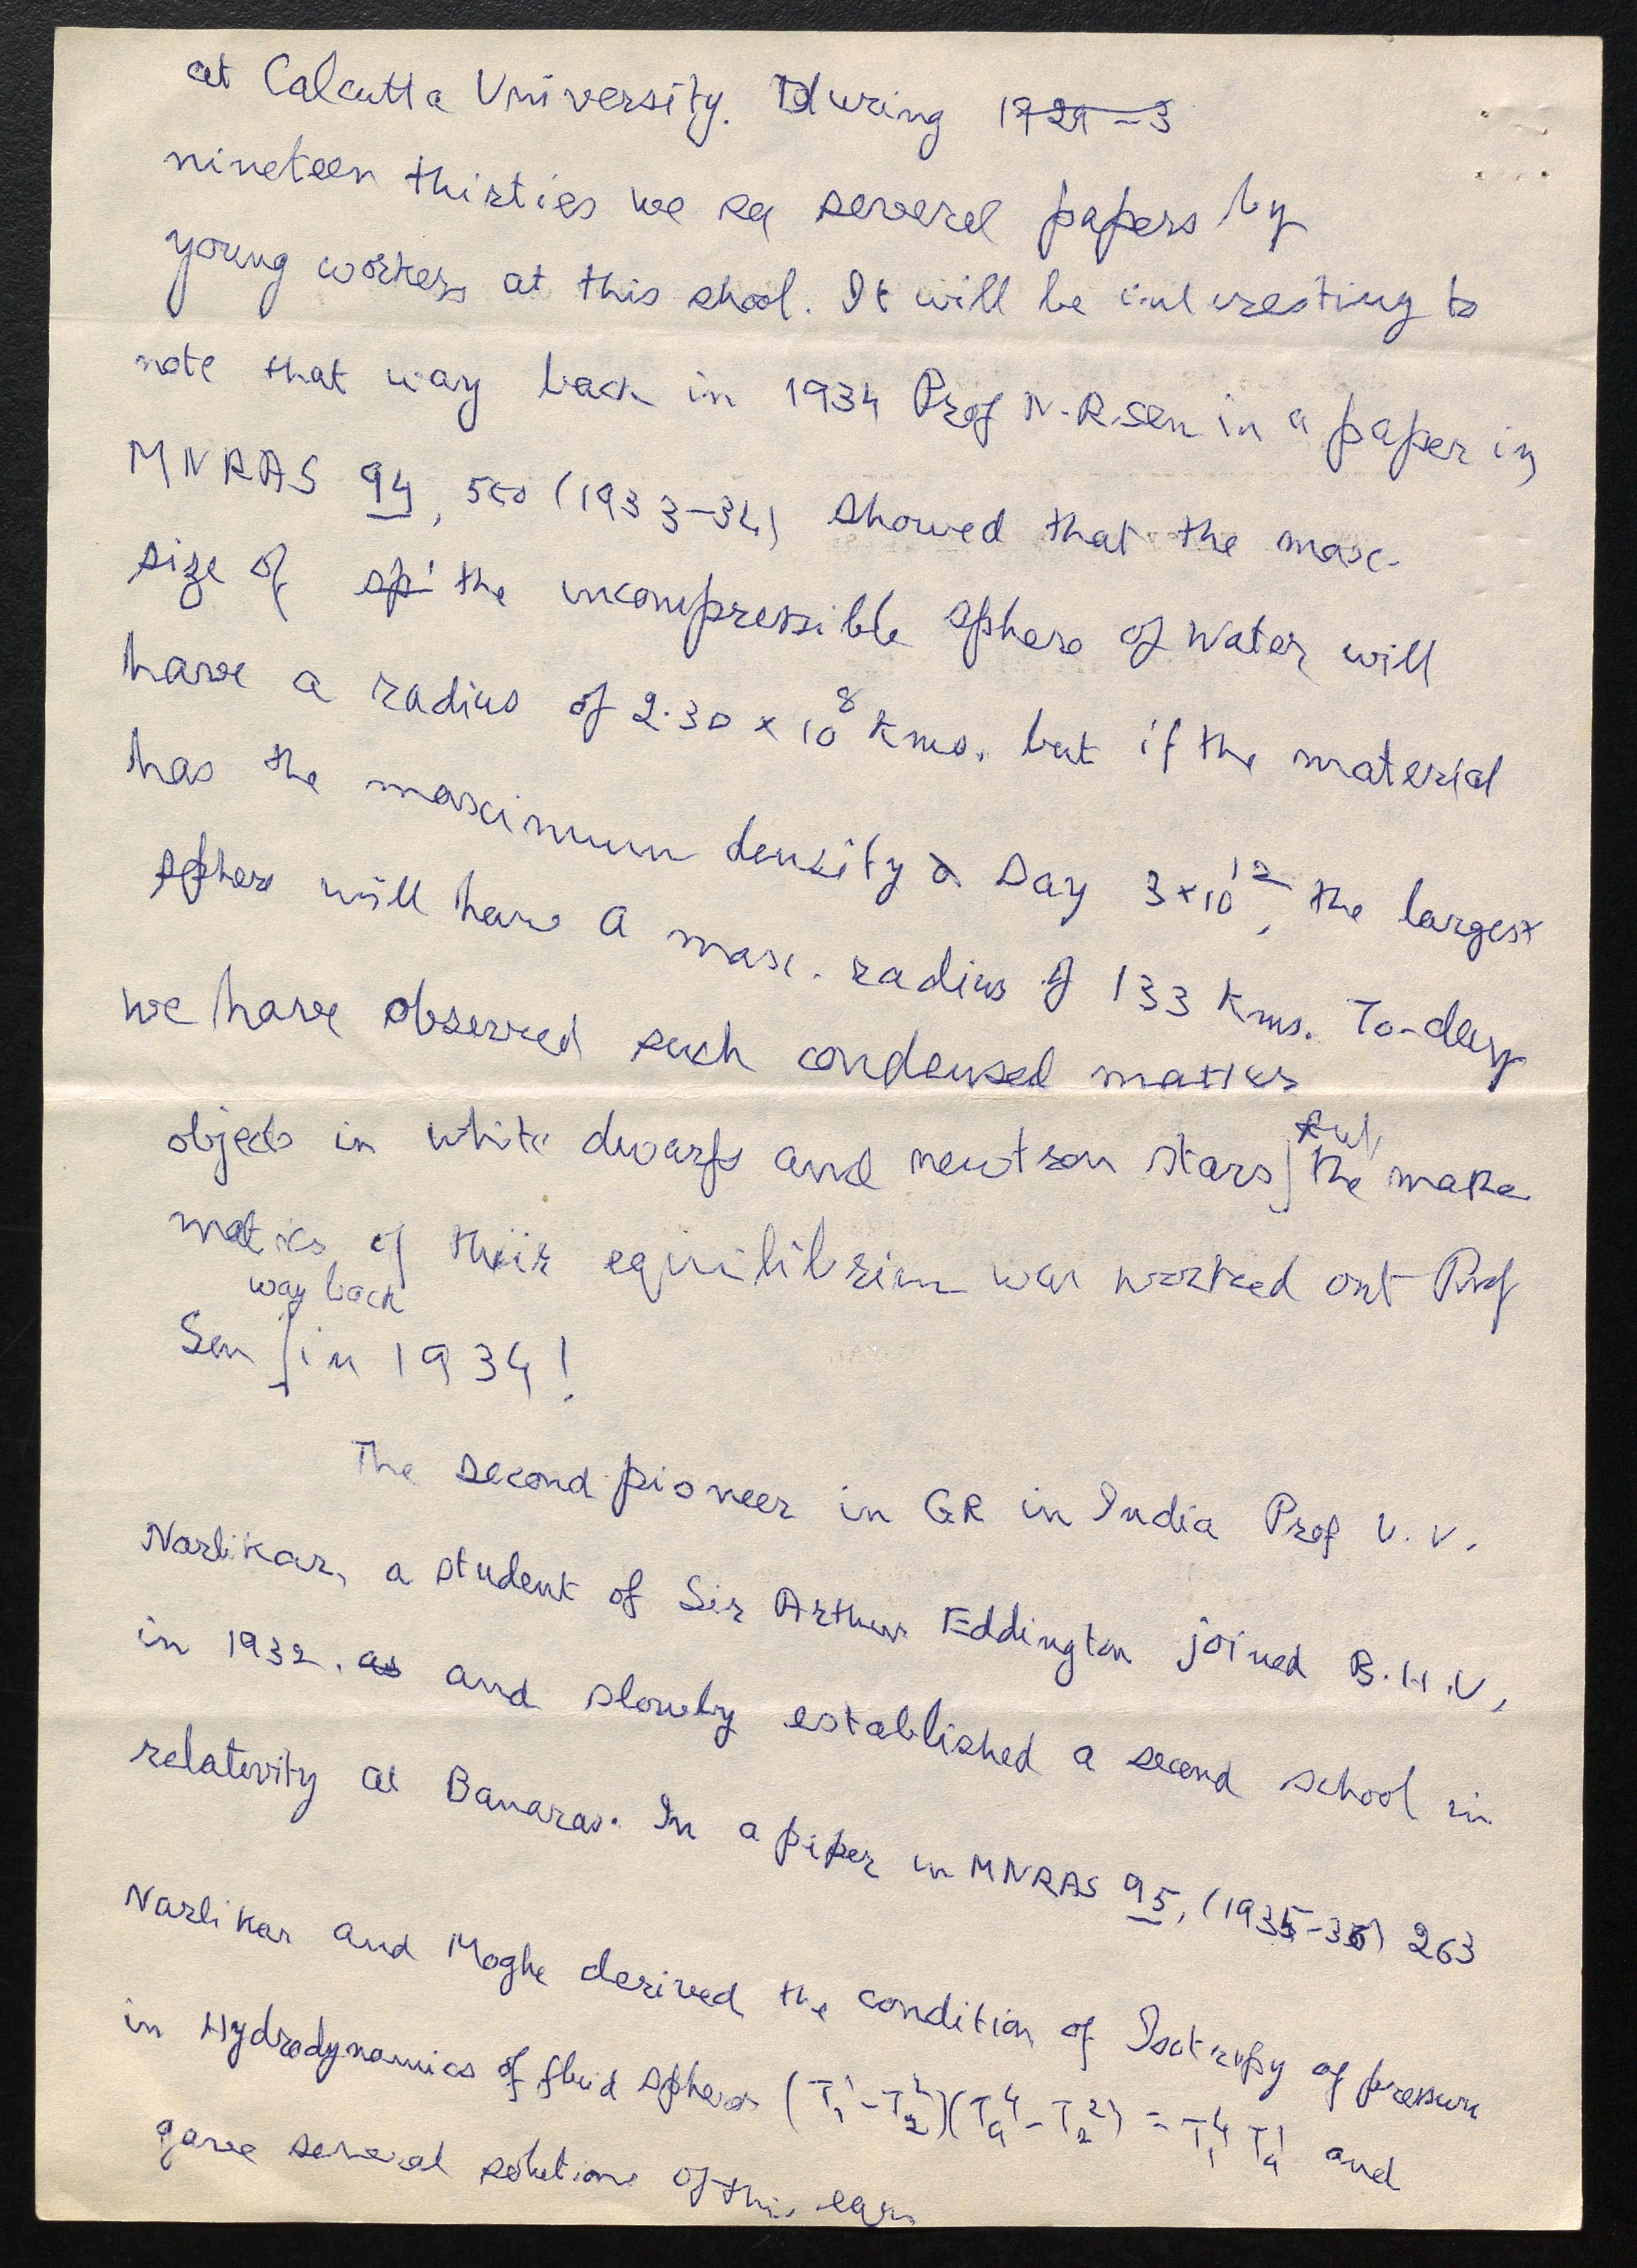 at Calcutta University. During 1929-3
nineteen thirties we see several papers by
young workers at this shool. It will be interesting to
note that way back in 1934 Prof N.R.Sen in a paper in
MNRAS 94, 550 (1933-34) showed that the max.
size of sp the incompressible sphere of water will
have a radius of 2.30 × 10⁸ kms. but if the material
has the maximum density say 3×10¹², the largest
sphere will have a max. radius of 133 kms. To-day
we have observed such condensed matter
objects in white dwarfs and newtron stars but the mathe
matics of their equilibrium was worked out Prof
Sen way back in 1934!
The second pioneer in GR in India Prof V.V.
Narlikar, a student of Sir Arthur Eddington joined B.H.U,
in 1932. as and slowly established a second school in
relativity at Banaras. In a paper in MNRAS 95, (1935-36) 263
Narlikar and Moghe derived the condition of Isotropy of pressure
in Hydrodynamics of fluid spheres (T₁¹-T₂²)(T₄⁴-T₂²) = T₁⁴ T₄¹ and
gave several solutions of this eqn.